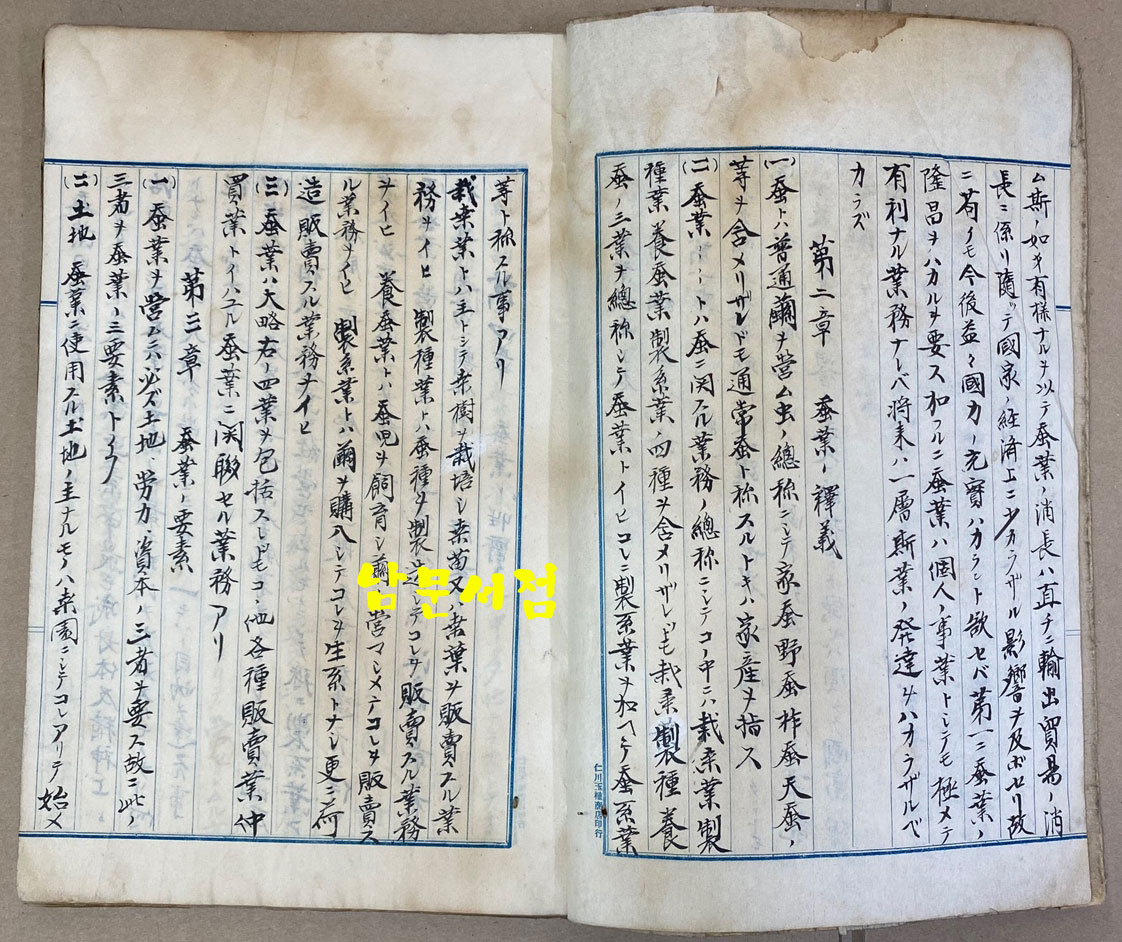 ム斯ノ如キ有様ナルヲ以テ蚕業ノ消長ハ直チニ輸出貿易ノ消
長ニ係リ随ッテ國家ノ経済上ニ少カラザル影響ヲ及ボセリ故
ニ苟クモ今後益々國力ノ充實ハカラント欲セバ第一ニ蚕業ノ
隆昌ヲハカルヲ要ス加フルニ蚕業ハ個人ノ事業トシテモ極メテ
有利ナル業務ナレバ将来ハ一層斯業ノ発達ヲハカラザルベ
カラズ
第二章 蚕業ノ釋義
(一) 蚕トハ普通繭ヲ営ム虫ノ總称ニシテ家蚕野蚕柞蚕天蚕ノ
等ヲ含メリザレドモ通常蚕ト称スルトキハ家産ヲ指ス
(二) 蚕業トハ蚕ニ関スル業務ノ總称ニシテコノ中ニハ栽桒業製
種業養蚕業製糸業ノ四種ヲ含メリザレドモ栽桒製種養
蚕ノ三業ヲ總称シテ蚕業トイヒコレニ製糸業ヲ加ヘテ蚕糸業
仁川玉種商店印行
等ト称スル事アリ
栽桒業トハ主トシテ桒樹ヲ栽培シ桒苗又ハ桒葉ヲ販賣スル業
務ヲイヒ 製種業トハ蚕種ヲ製造シテコレヲ販賣スル業務
ヲイヒ 養蚕業トハ蚕児ヲ飼育シ繭ヲ営マシメテコレヲ販賣ス
ル業務ヲイヒ 製糸業トハ繭ヲ購入シテコレヲ生糸トナシ更ニ荷
造販賣スル業務ヲイヒ
(三) 蚕業ハ大略右ノ四業ヲ包括スレドモコノ他各種販賣業仲
買業トイハユル蚕業ニ関聯セル業務アリ
第三章 蚕業ノ要素
(一) 蚕業ヲ営ムニハ必ズ土地 労力 資本ノ三者ヲ要ス故ニ此ノ
三者ヲ蚕業ノ三要素トイフ
(二) 土地 蚕業ニ使用スル土地ノ主ナルモノハ桒園ニシテコレアリテ始メ
남문서점